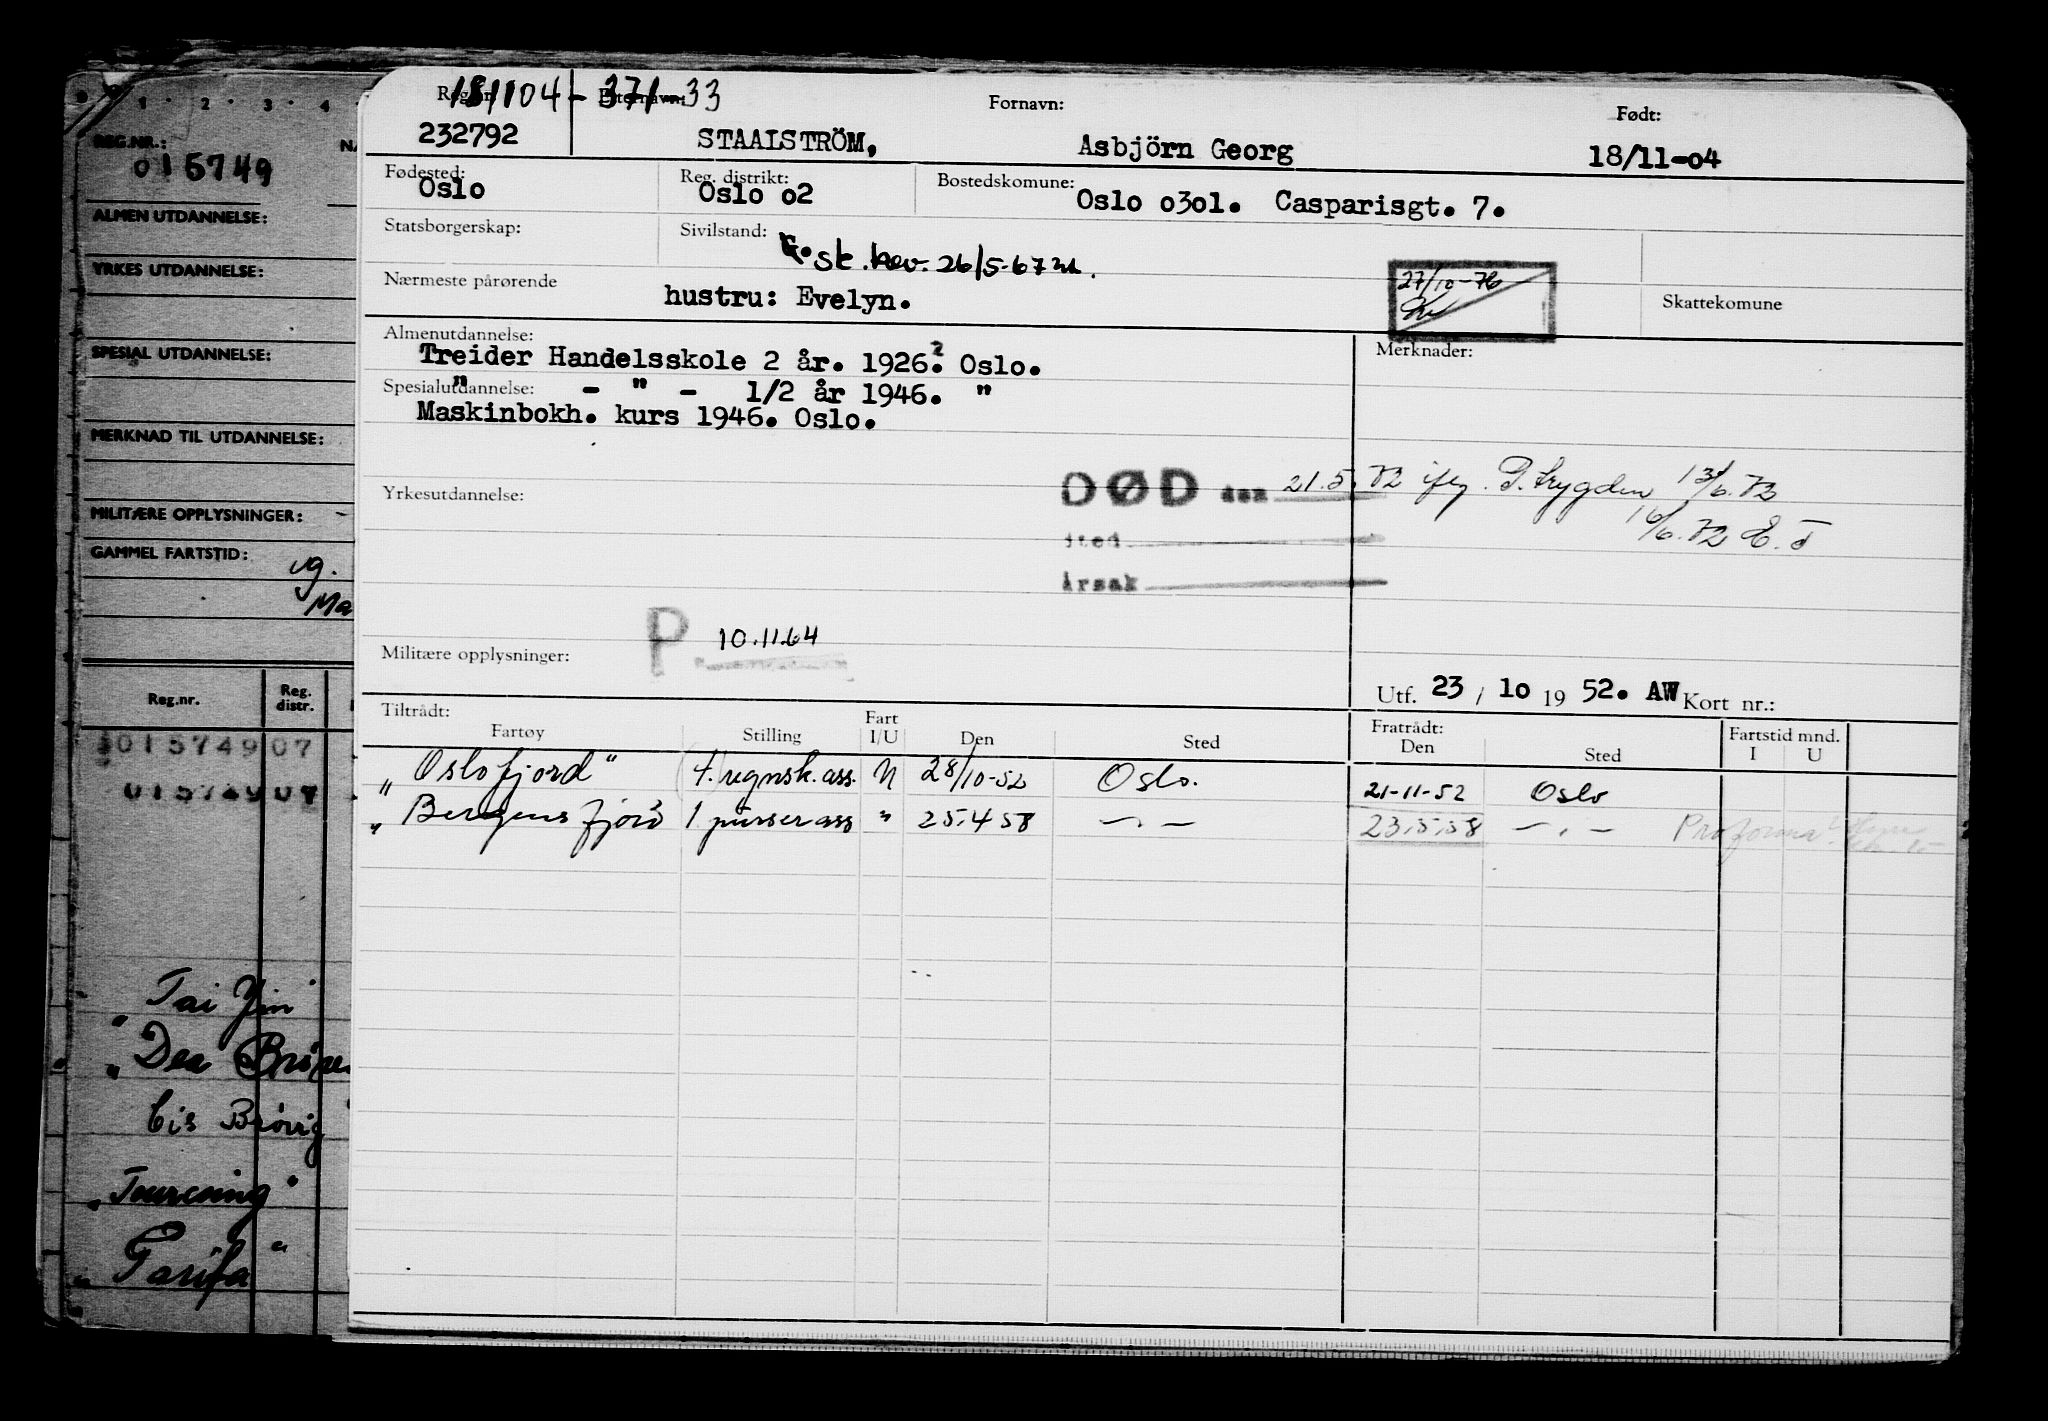 1 · 2 · 3 · 4
REG.NR.:
015749
ALMEN UTDANNELSE:
YRKES UTDANNELSE:
SPESIAL UTDANNELSE:
MERKNAD TIL UTDANNELSE:
MILITÆRE OPPLYSNINGER: -
GAMMEL FARTSTID:
Ma
Reg.nr. Reg. distr.
015749 07
015749 07
"Tai Yin"
"Dea Bröve
Cis Brøvig
"Tourcoing"
"Tarifa"
181104 - 371-33
Etternavn: Fornavn: Født:
232792 STAALSTRÖM, Asbjörn Georg 18/11-04
Fødested: Reg. distrikt: Bostedskomune:
Oslo Oslo o2 Oslo o3o1. Casparisgt. 7.
Statsborgerskap: Sivilstand:
G. sk. hev. 26/5-67
Nærmeste pårørende hustru: Evelyn.
27/10-76
Skattekomune
Almenutdannelse: Merknader:
Treider Handelsskole 2 år. 1926.? Oslo.
Spesialutdannelse: " - " - 1/2 år 1946. "
Maskinbokh. kurs 1946. Oslo.
Yrkesutdannelse:
DØD den 21.5.72 ifg. P.trygden 13/6.72
sted 16/6.72 E.T
årsak
P 10.11.64
Militære opplysninger:
Utf. 23 / 1o 19 52. AW Kort nr.:
Tiltrådt: Fratrådt: Fartstid mnd.
Fartøy Stilling Fart I/U Den Sted Den Sted I U
"Oslofjord" 4. regnsk.ass. U 28/10-52 Oslo. 21-11-52 Oslo
" Bergensfjord 1 purserass " 25.4 58 — . — 23.5.58 — . — Proforma